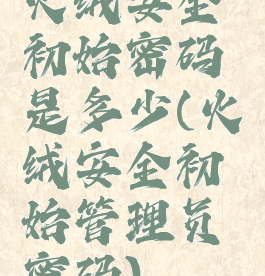 火绒安全
初始密码
是多少(火
绒安全初
始管理员
密码)